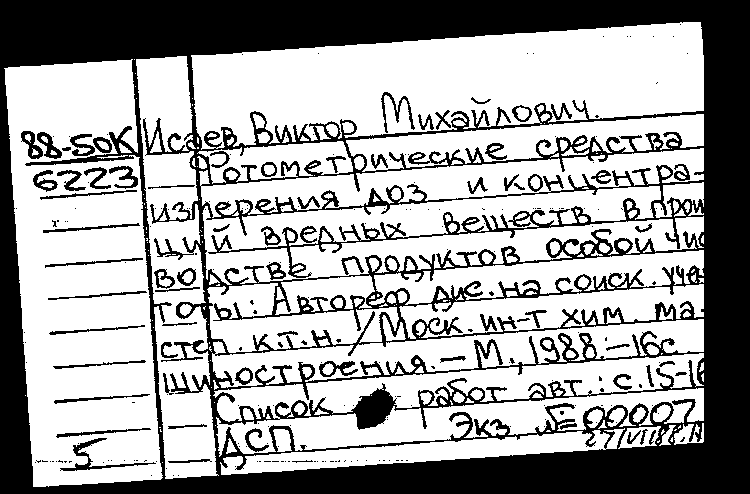 88-50К Исаев, Виктор Михайлович.
6223 Фотометрические средства
измерения доз и концентра-
ций вредных веществ в прои
водстве продуктов особой чис
тоты: Автореф дис. на соиск. учен
степ. к.т.н. / Моск. ин-т хим. ма-
шиностроения. – М., 1988. – 16с.
Список работ авт.: с. 15-16
ДСП. Экз. №00007
5 27/VII88.